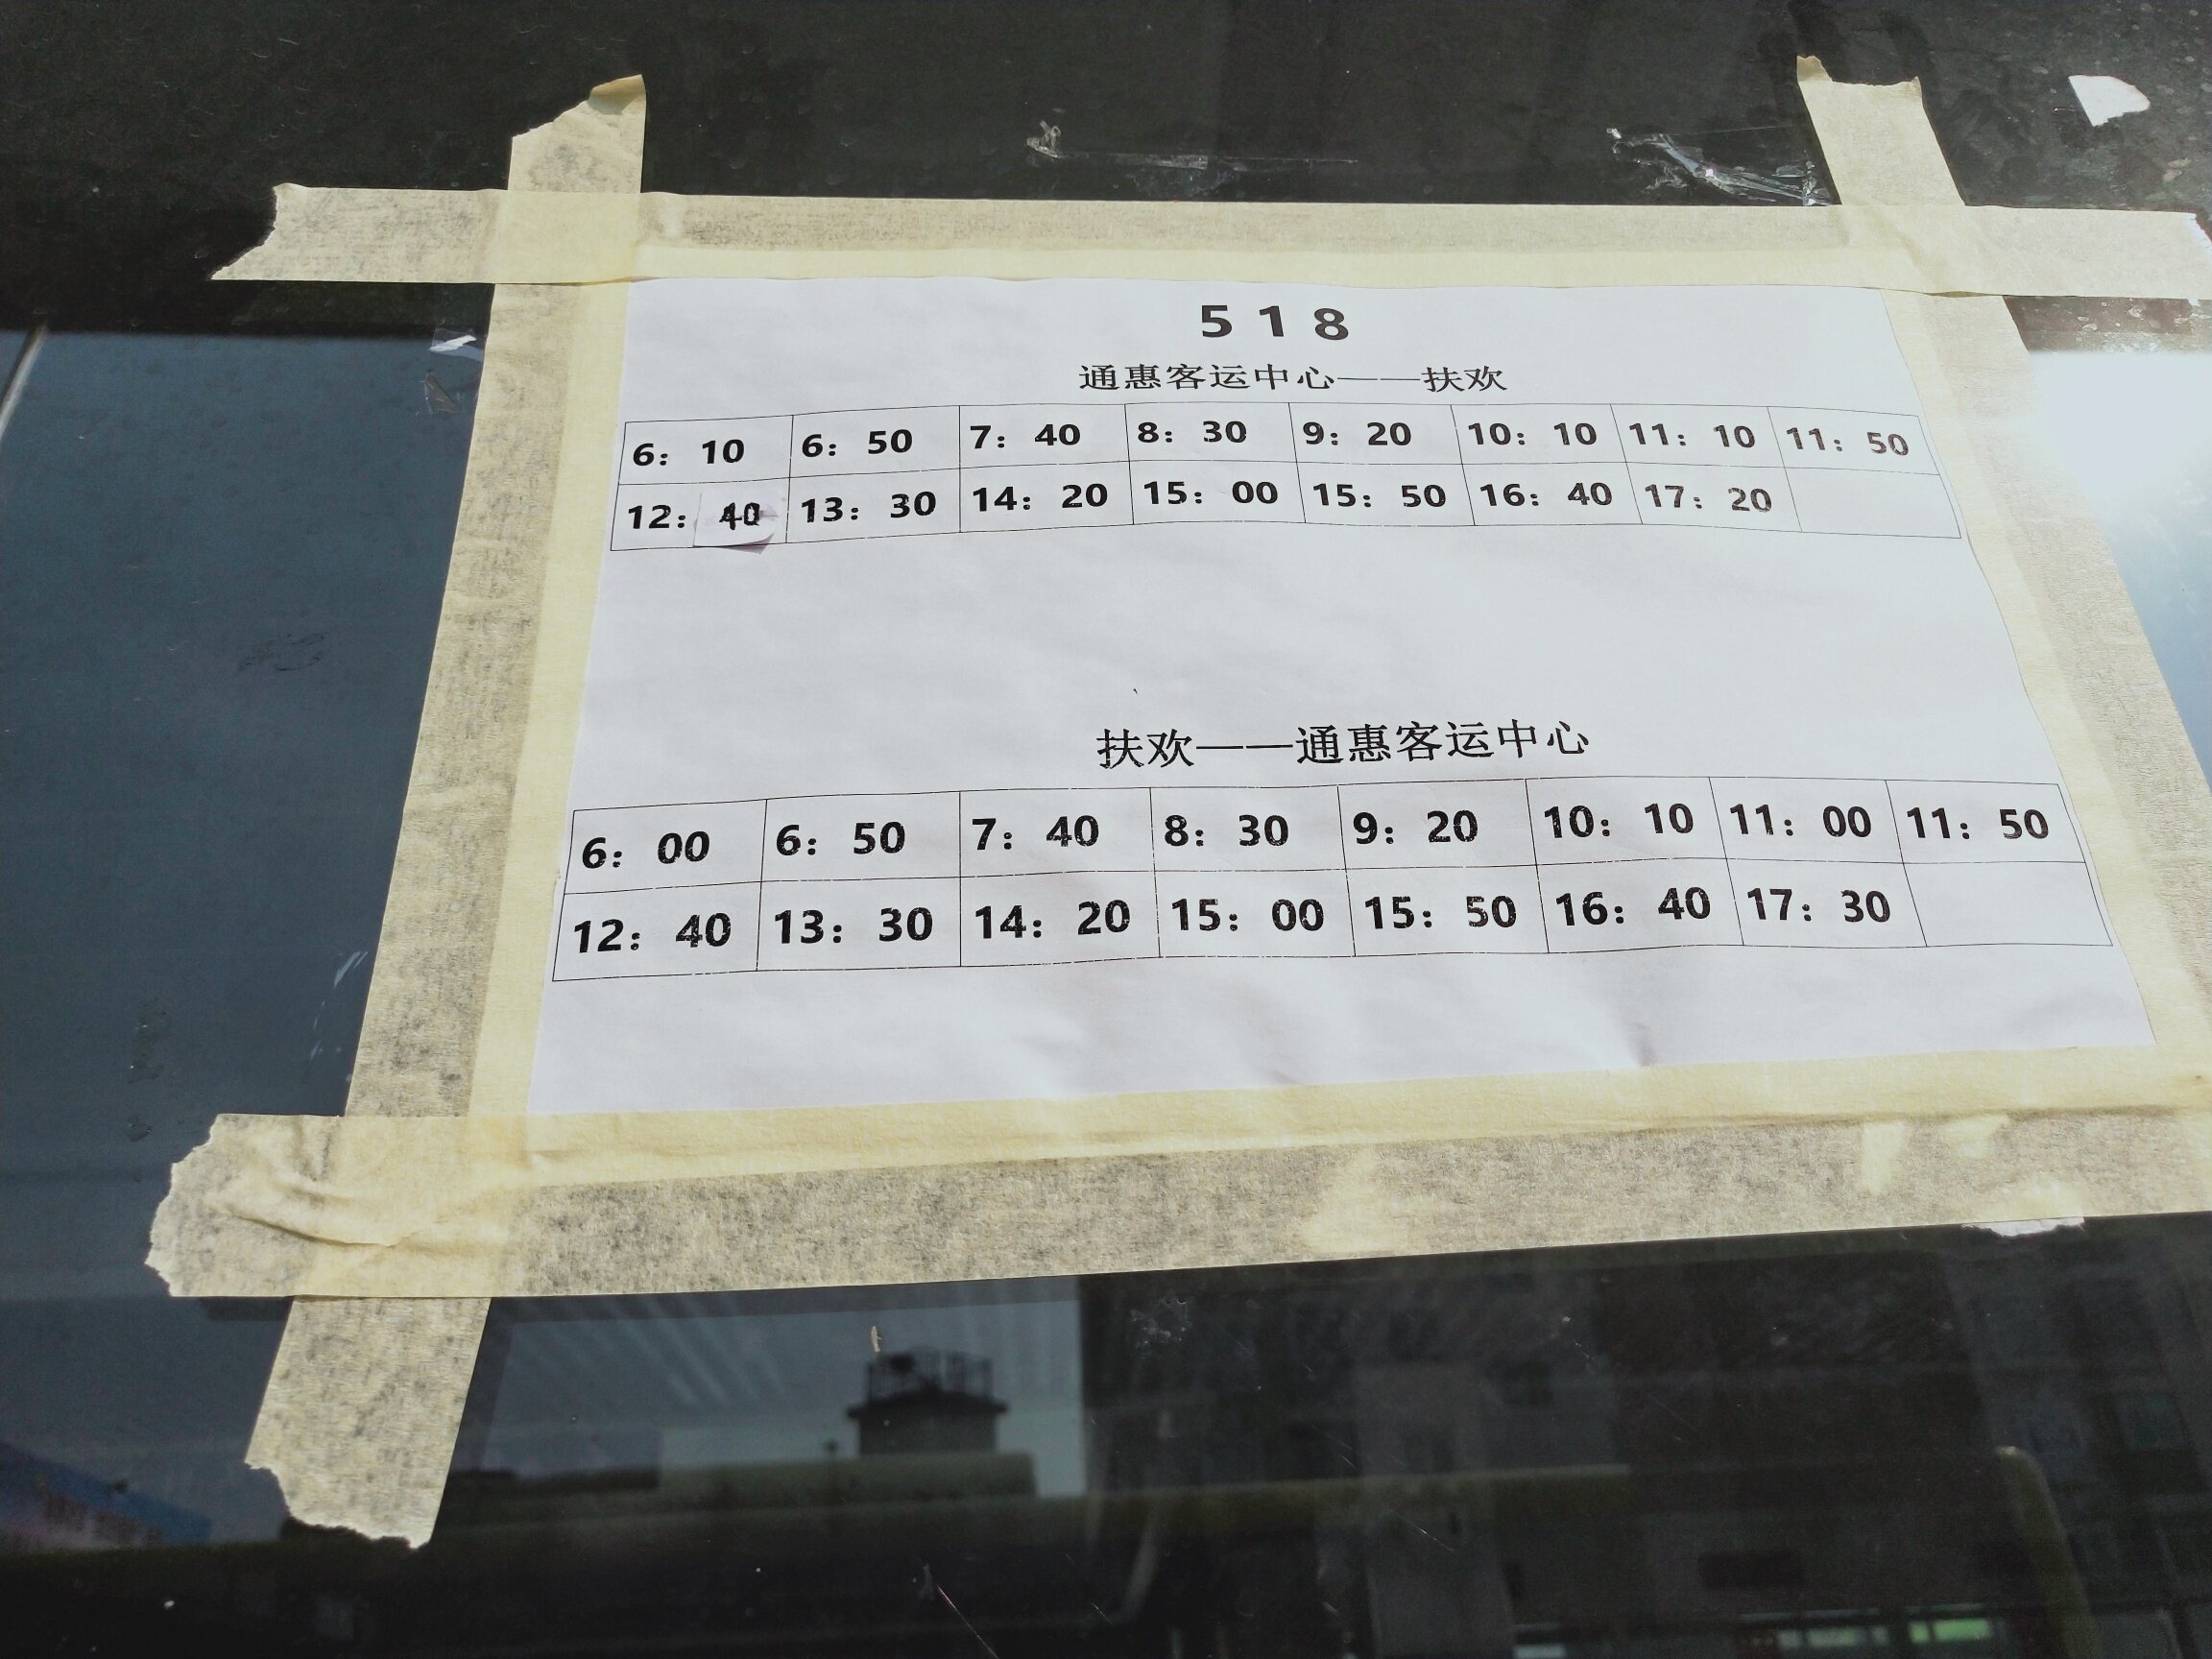 518
通惠客运中心——扶欢
6：10 6：50 7：40 8：30 9：20 10：10 11：10 11：50
12：40 13：30 14：20 15：00 15：50 16：40 17：20
扶欢——通惠客运中心
6：00 6：50 7：40 8：30 9：20 10：10 11：00 11：50
12：40 13：30 14：20 15：00 15：50 16：40 17：30